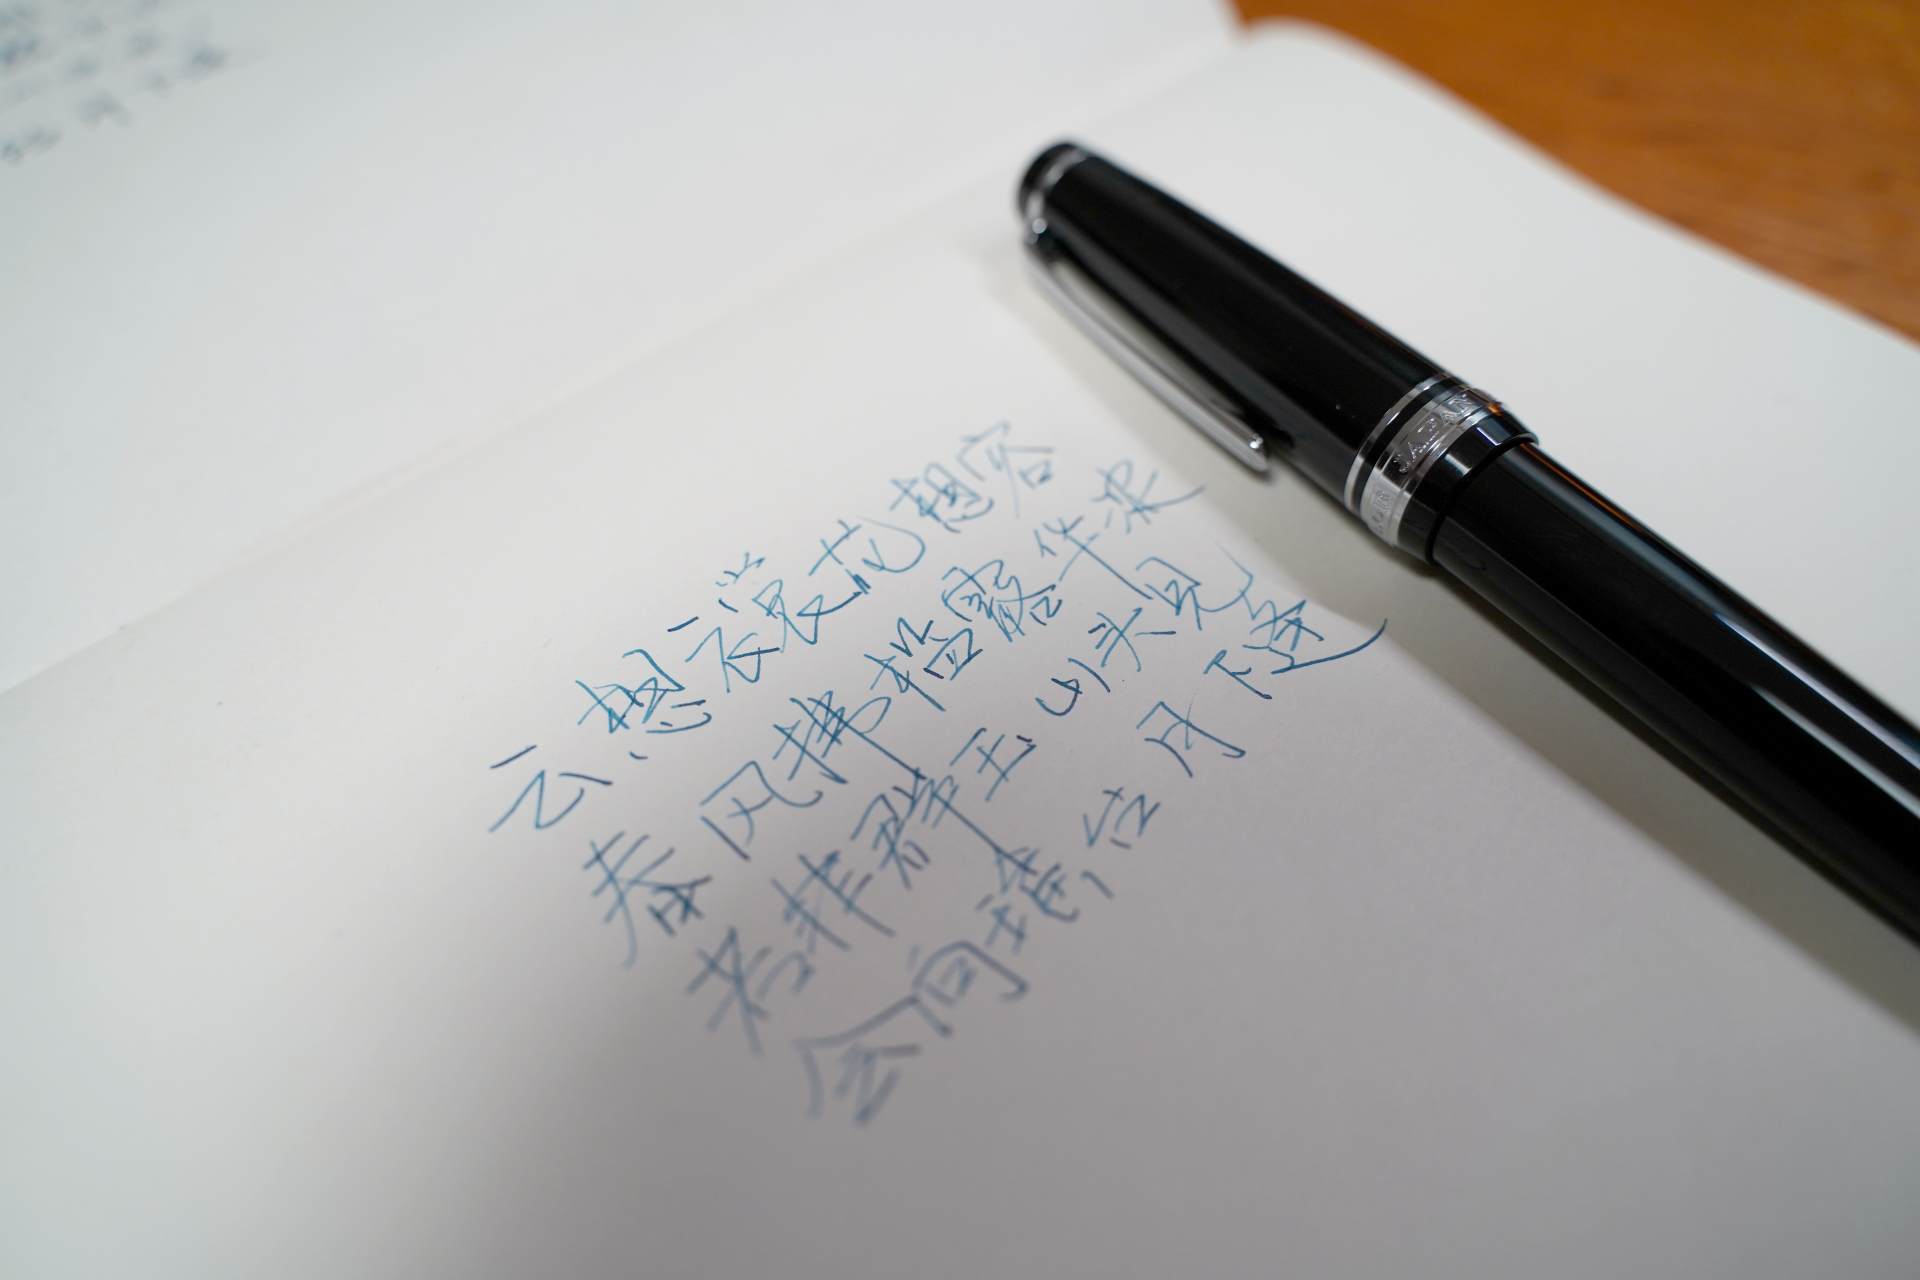 云想衣裳花想容
春风拂槛露华浓
若非群玉山头见
会向瑶台月下逢
JAPAN